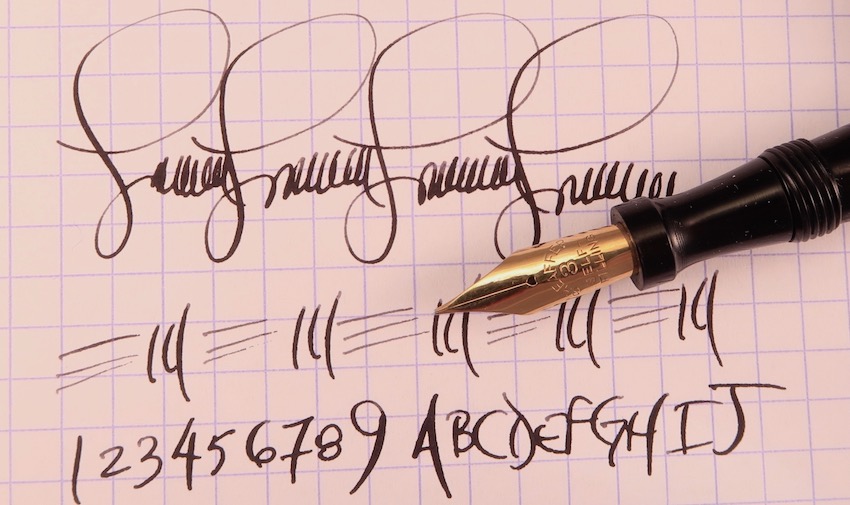 123456789 ABCDEFGHIJ
3